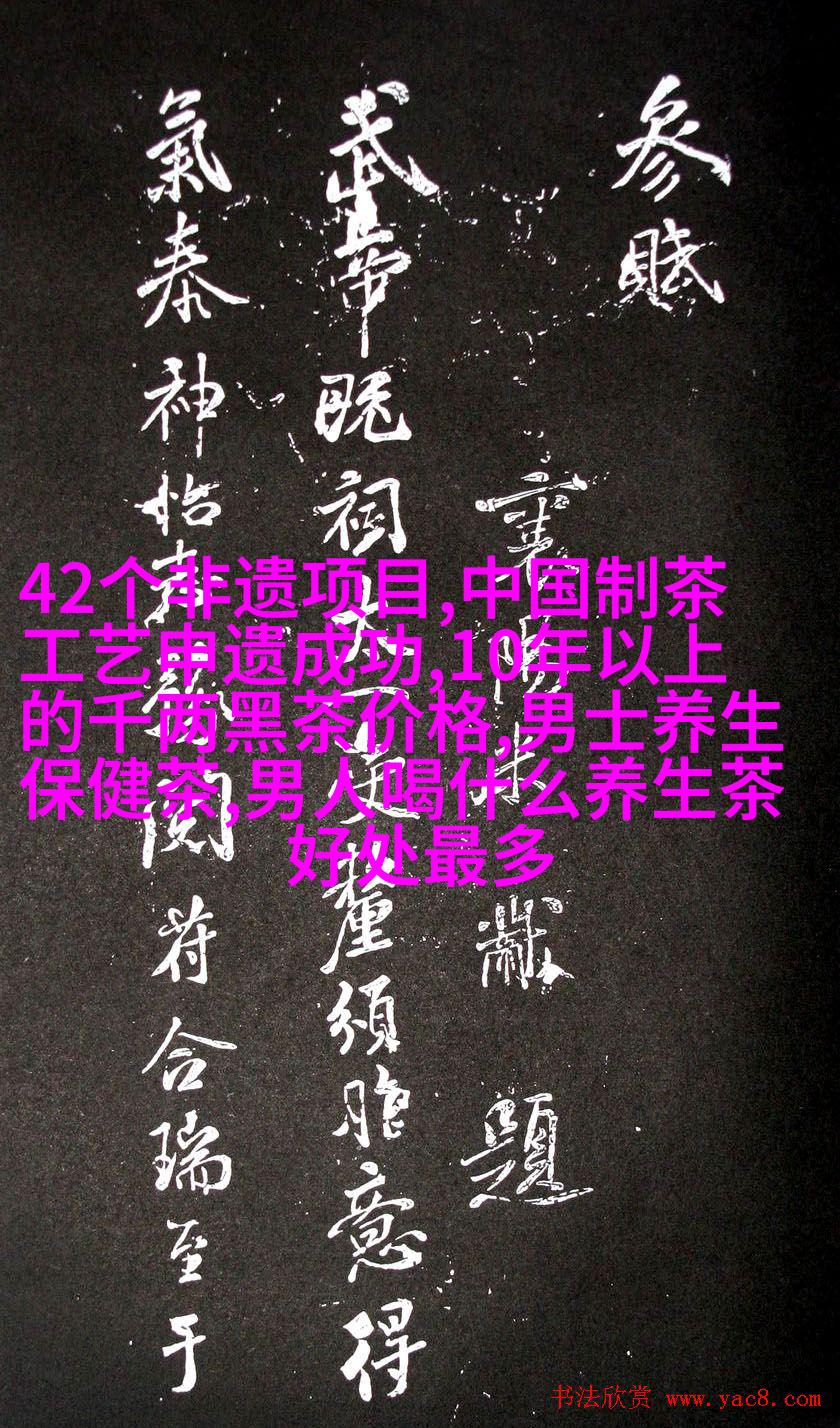 參賦
襄陽米黻題
武帝既祠太一受釐頒胙意得
氣泰神怡閱符合瑞至于
42个非遗项目,中国制茶
工艺申遗成功,10年以上
的千两黑茶价格,男士养生
保健茶,男人喝什么养生茶
好处最多
书法欣赏 www.yac8.com